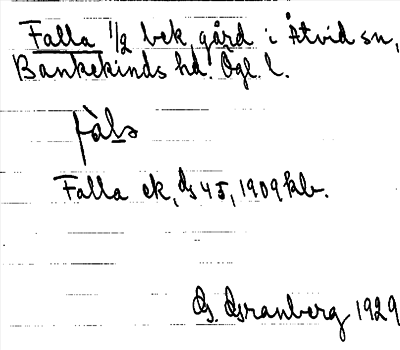 Falla 1/2 bek, gård i Åtvid sn,
Bankekinds hd. Ögl. l.
fàls
Falla ek, ds 45, 1909 kb.
G. Granberg 1929